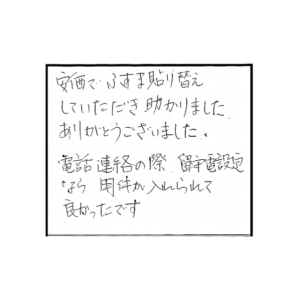 安価で ふすま貼り替え
していただき助かりました
ありがとうございました。
電話連絡の際、留守電設定
なら 用件が入れられて
良かったです